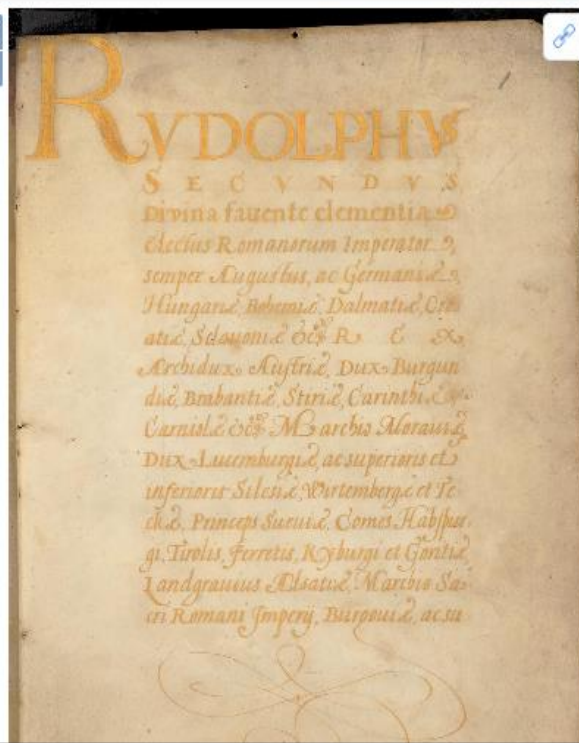 RVDOLPHVS
SECVNDVS
Divina favente clementia
Electus Romanorum Imperator,
semper Augustus, ac Germaniæ,
Hungariæ, Bohemiæ, Dalmatiæ, Cro
atiæ, Sclavoniæ &c. REX
Archidux Austriæ, Dux Burgun
diæ, Brabantiæ, Stiriæ, Carinthiæ
Carniolæ &c. Marchio Moraviæ,
Dux Lucemburgiæ, ac superioris et
inferioris Silesiæ, Wirtembergæ et Te
ckæ, Princeps Sueviæ, Comes Habspur
gi, Tirolis, Ferretis, Kyburgi et Goritiæ
Landgravius Alsatiæ, Marchio Sa
cri Romani Imperij, Burgoviæ, ac su